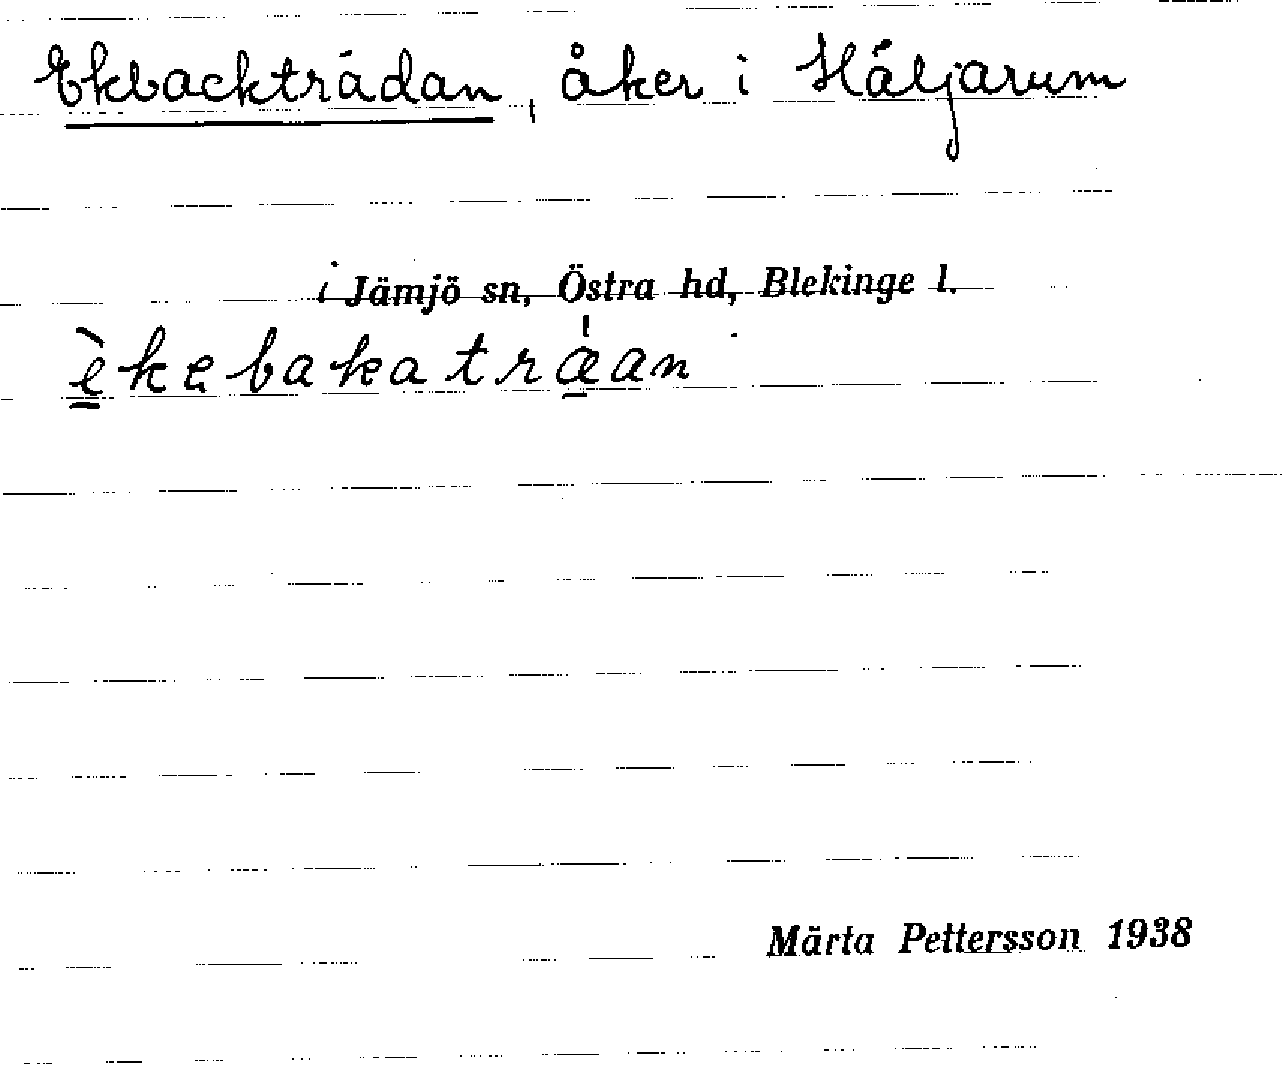 Ekbackträdan, åker i Häljarum
i Jämjö sn, Östra hd, Blekinge l.
èkebakatræ̍an
Märta Pettersson 1938